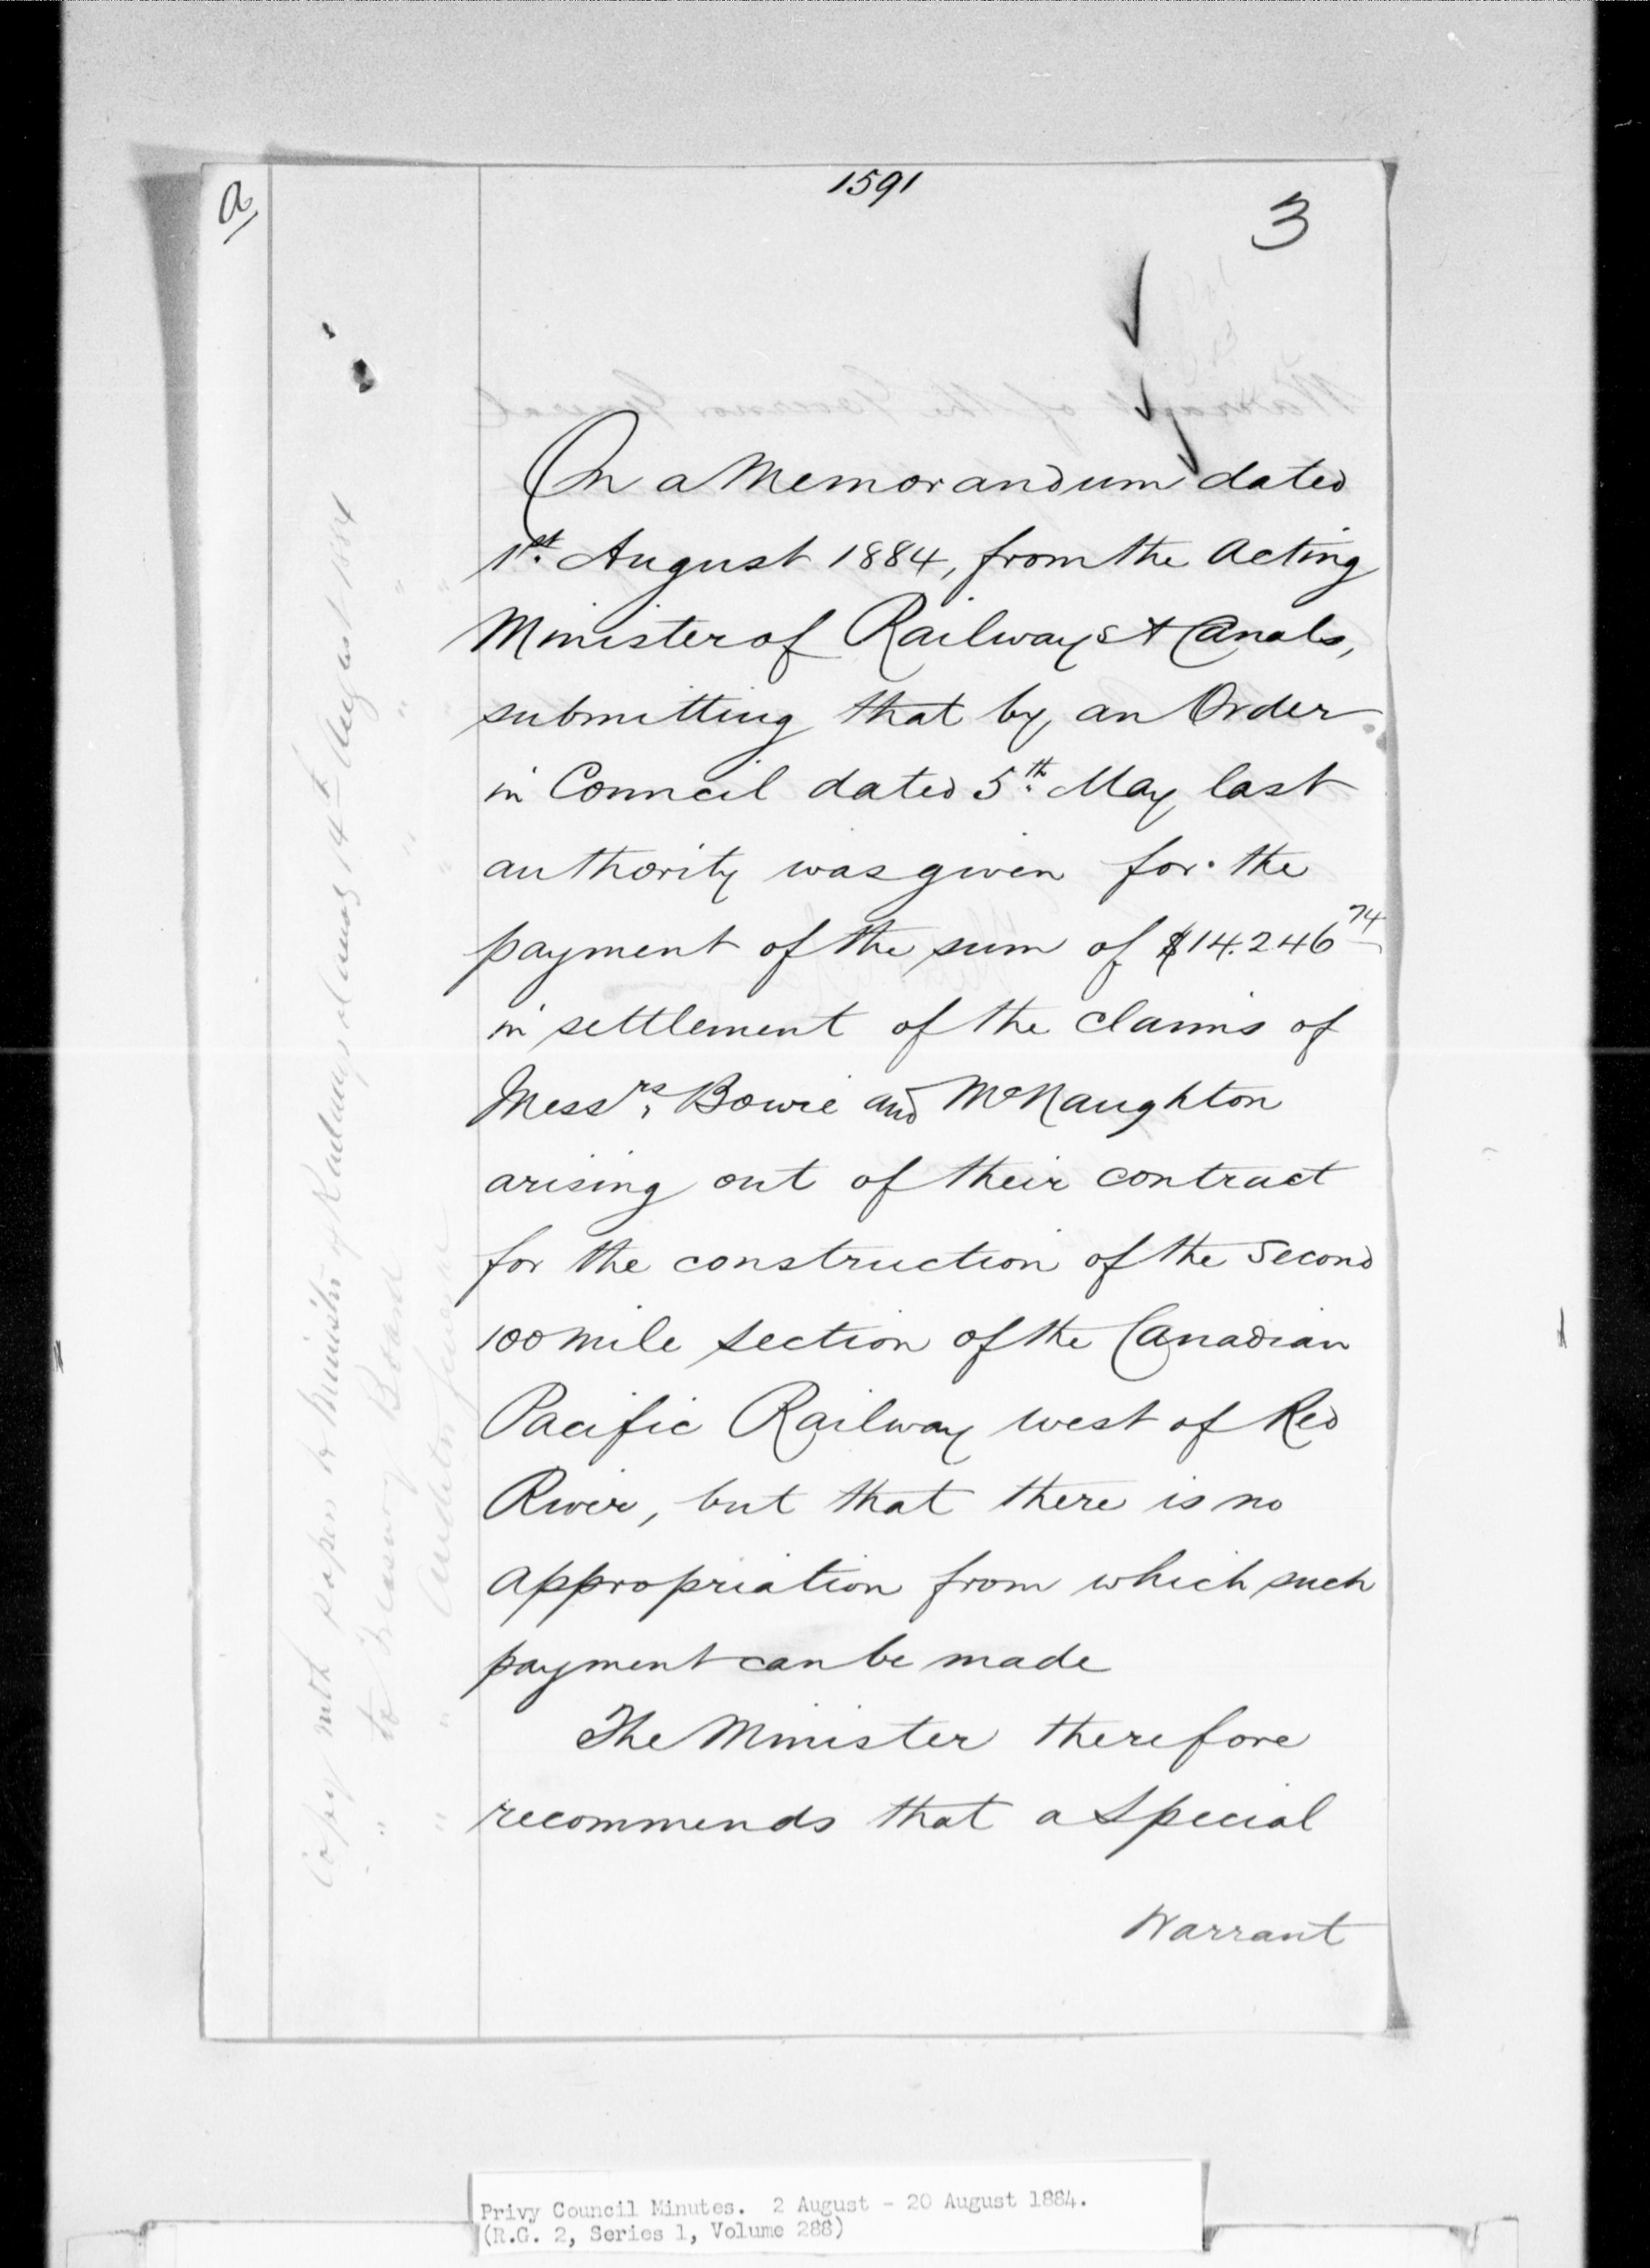 a
1591
3
On a Memorandum dated
1st. August 1884, from the Acting
Minister of Railways & Canals,
submitting that by an Order
in Council dated 5th. May last
authority was given for the
payment of the sum of $14.246 74
in settlement of the claims of
Messrs. Bowie and McNaughton
arising out of their contract
for the construction of the second
100 mile section of the Canadian
Pacific Railway west of Red
River, but that there is no
appropriation from which such
payment can be made
The Minister therefore
recommends that a Special
Warrant
Copy with papers to Minister of Railways &c 14th August 1884
" to Treasury Board " " "
" " Auditor General " "
Privy Council Minutes. 2 August - 20 August 1884.
(R.G. 2, Series 1, Volume 288)